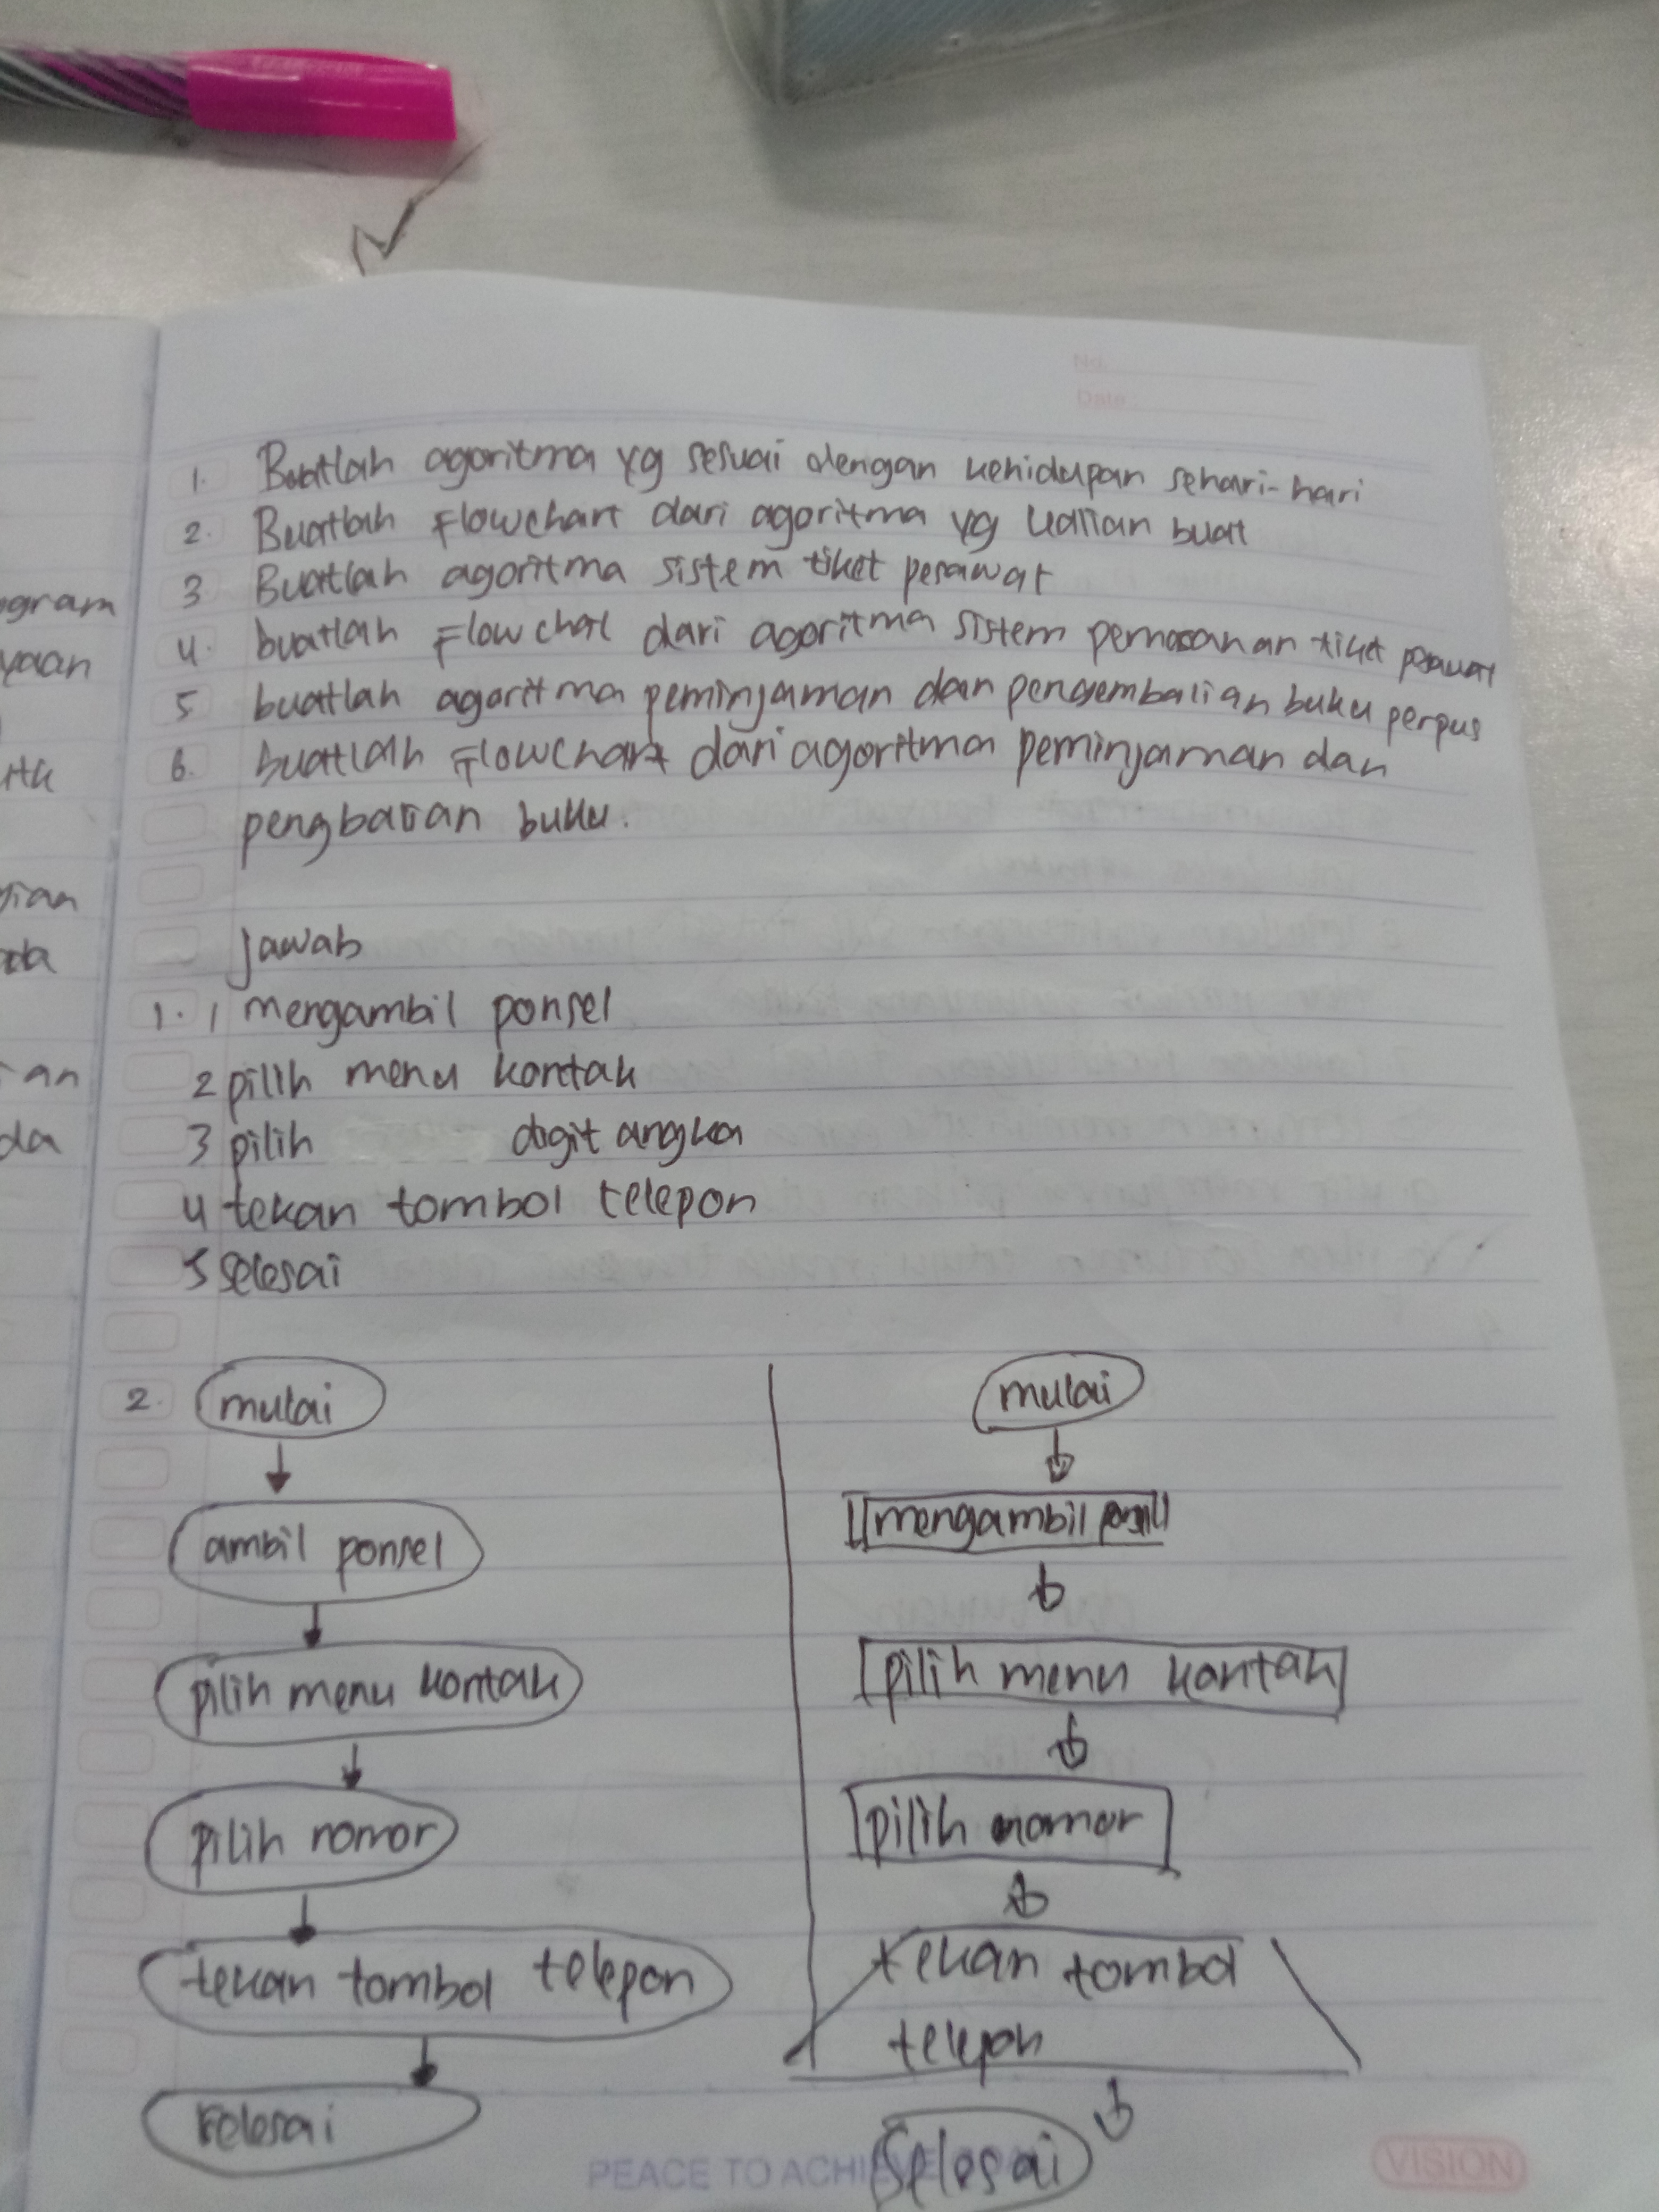 No.
Date:
1. Buatlah agoritma yg sesuai dengan kehidupan sehari-hari
2. Buatlah Flowchart dari agoritma yg kalian buat
3 Buatlah agoritma sistem tiket pesawat
4. buatlah Flowchat dari agoritma sistem pemasanan tiket pesawat
5 buatlah agoritma peminjaman dan pengembalian buku perpus
6. buatlah Flowchart dari agoritma peminjaman dan
pengbalian buku.
jawab
1. 1 mengambil ponsel
2 pilih menu kontak
3 pilih digit angka
4 tekan tombol telepon
5 selesai
2. mulai
ambil ponsel
pilih menu kontak
pilih nomor
tekan tombol telepon
selesai
mulai
mengambil ponsel
pilih menu kontak
pilih nomor
tekan tombol
telepon
selesai
ogram
yaan
itk
gian
ada
an
da
PEACE TO ACHIE
VISION